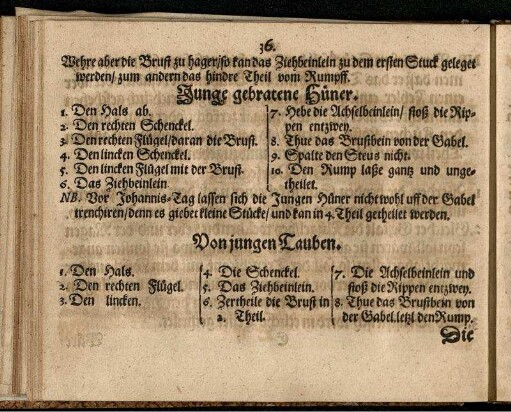 36.
Wehre aber die Brust zu hager/so kan das Ziehbeinlein zu dem ersten Stuck geleget
werden/ zum andern das hindre Theil vom Rumpff.
Junge gebratene Hüner.
1. Den Hals ab.
2. Den rechten Schenckel.
3. Den rechten Flügel/daran die Brust.
4. Den lincken Schenckel.
5. Den lincken Flügel mit der Brust.
6. Das Ziehbeinlein
7. Hebe die Achselbeinlein/ stoß die Rip-
pen entzwey.
8. Thue das Brustbein von der Gabel.
9. Spalte den Steus nicht.
10. Den Rump laße gantz und unge-
theilet.
NB. Vor Johannis-Tag lassen sich die Jungen Hüner nicht wohl uff der Gabel
trenchiren/denn es giebet kleine Stücke/ und kan in 4. Theil getheilet werden.
Von jungen Tauben.
1. Den Hals.
2. Den rechten Flügel.
3. Den lincken.
4. Die Schenckel.
5. Das Ziehbeinlein.
6. Zertheile die Brust in
2. Theil.
7. Die Achselbeinlein und
stoß die Rippen entzwey.
8. Thue das Brustbein von
der Gabel. letzl den Rump.
Die